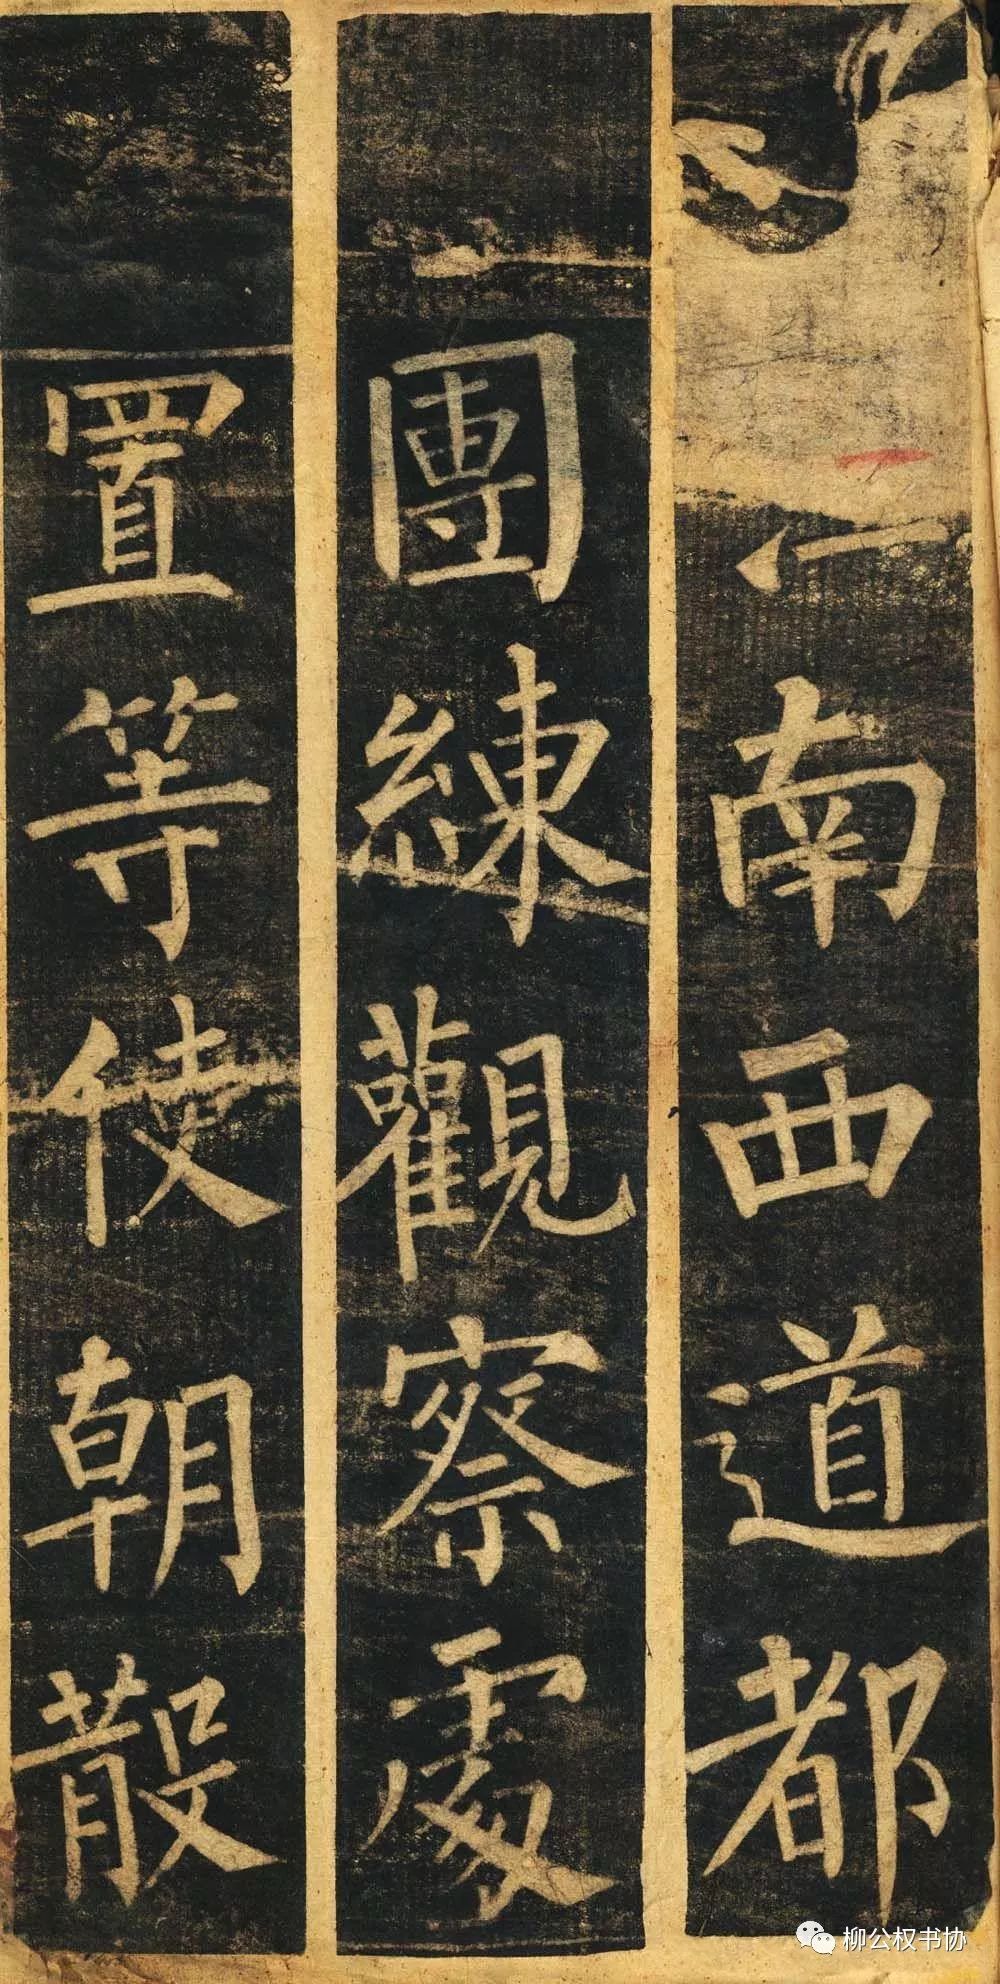 南西道都
團練觀察處
置等使朝
散
柳公权书协